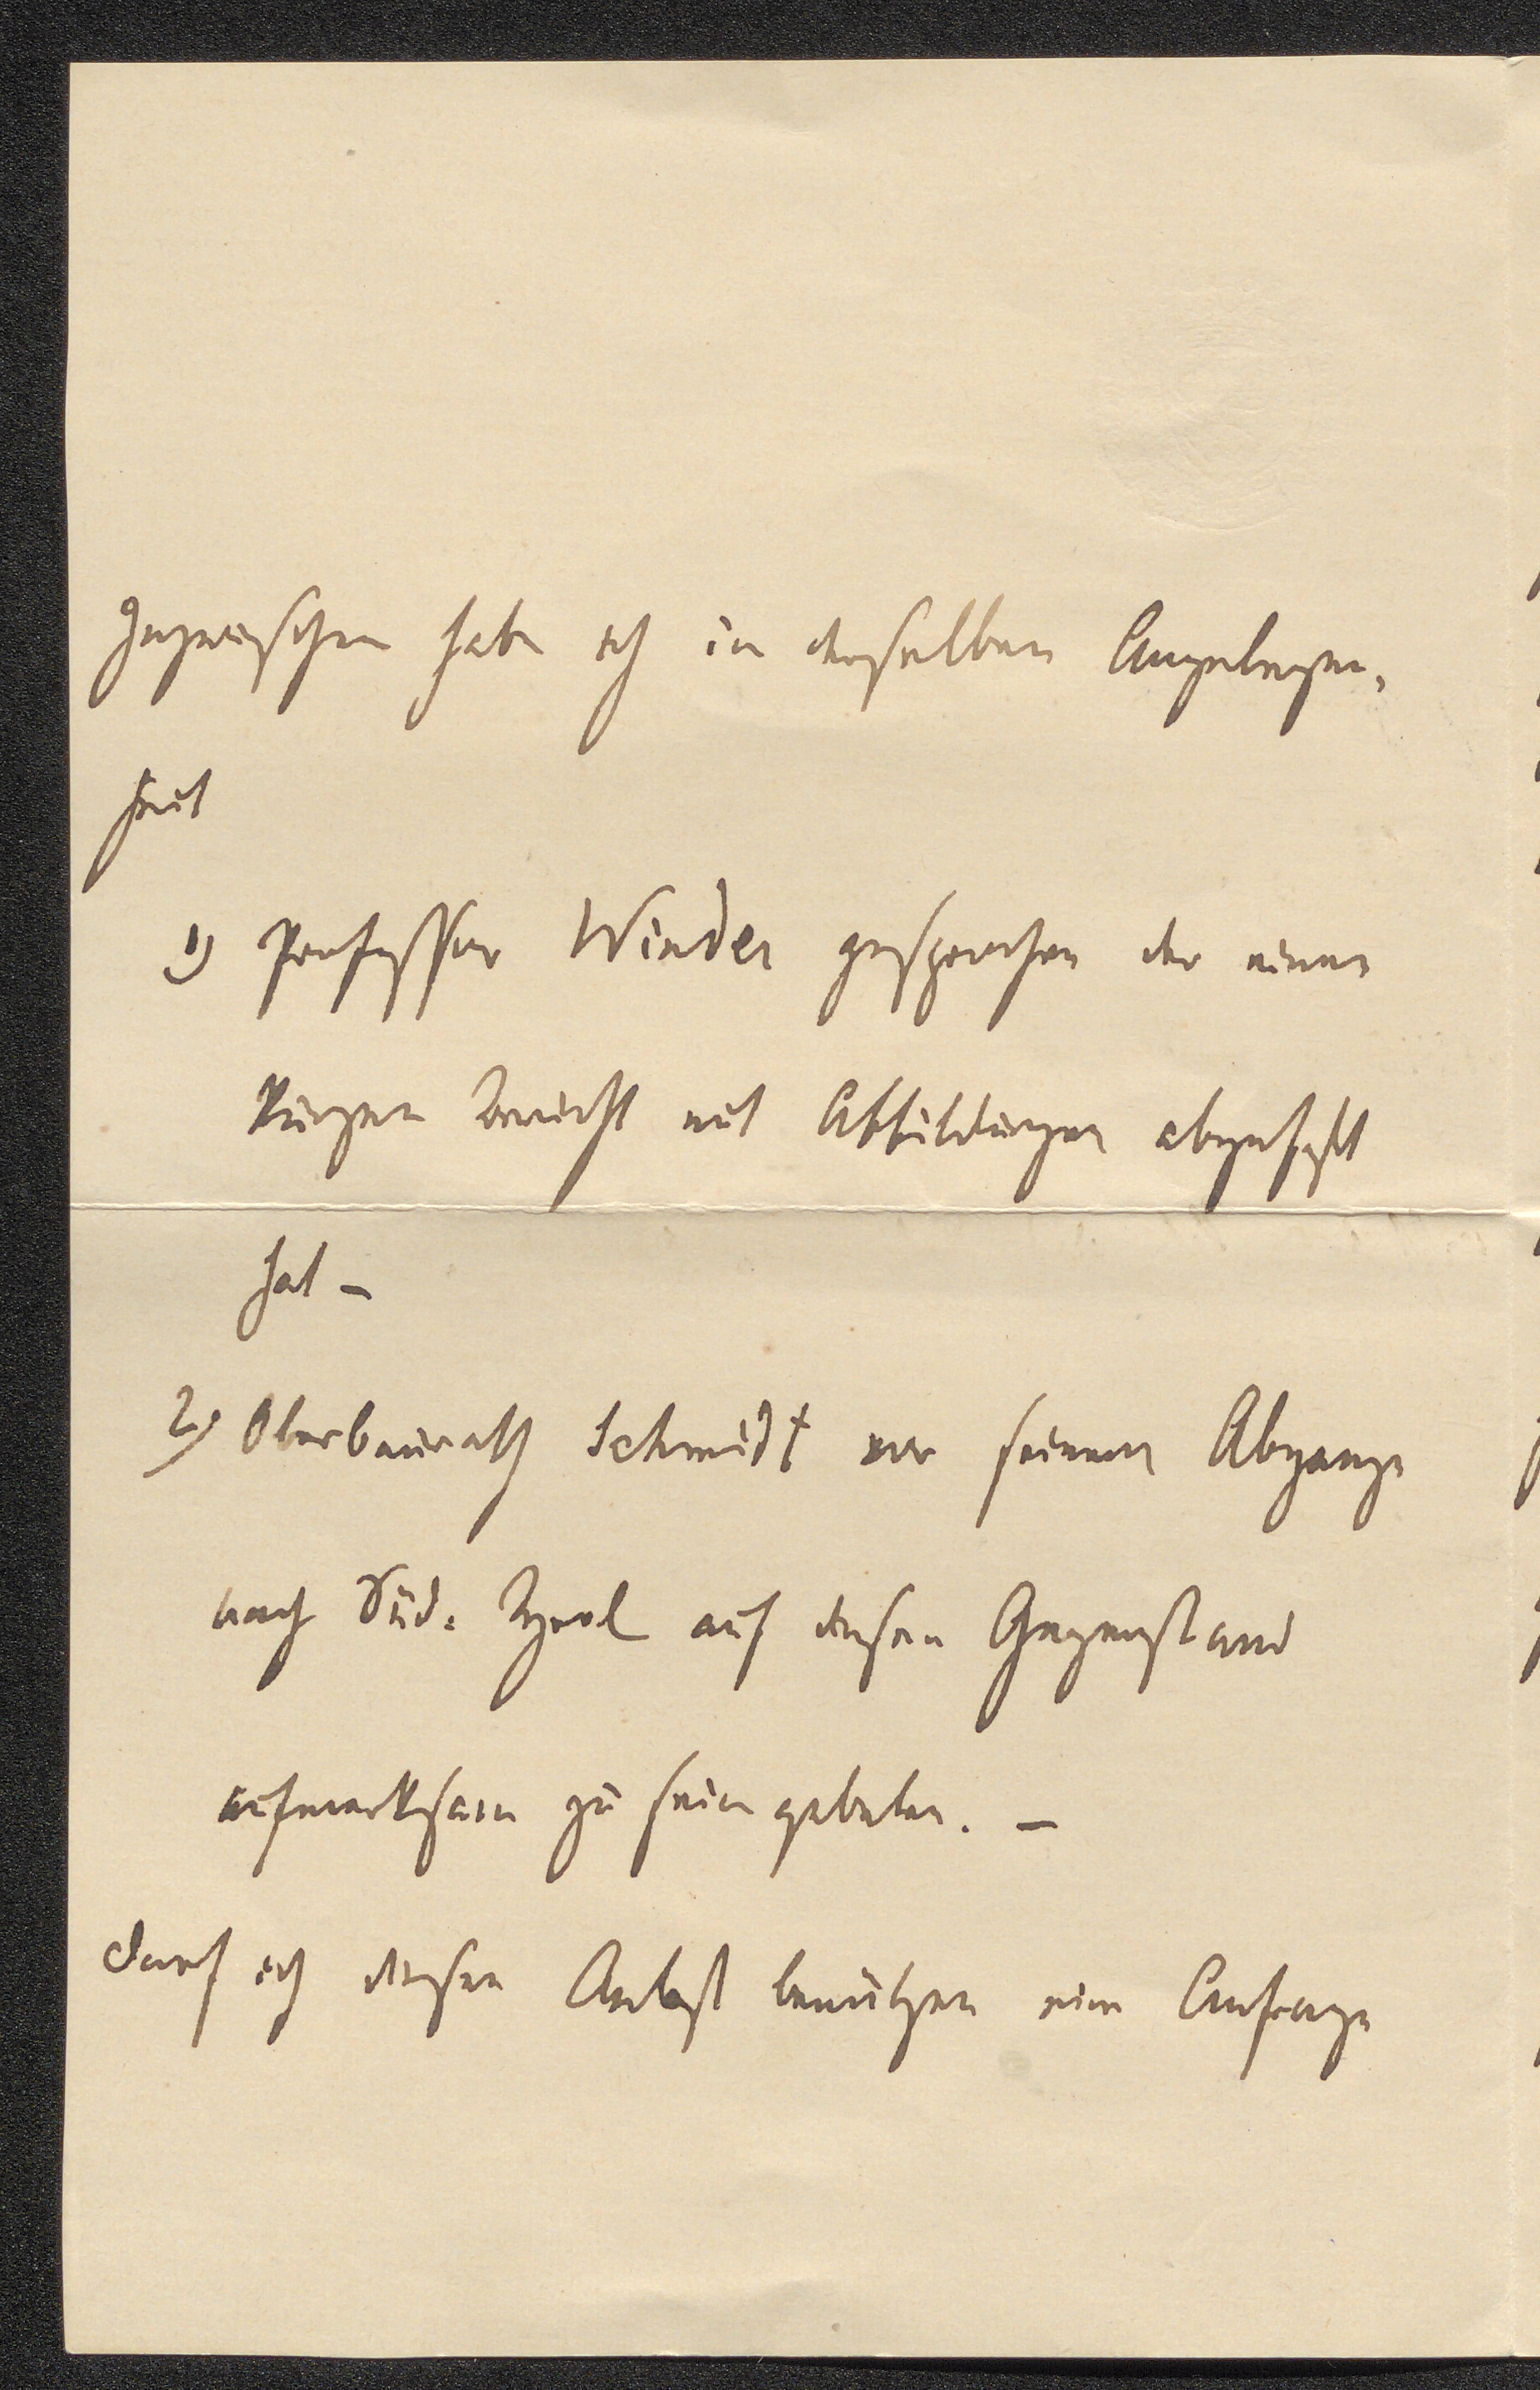 Inzwischen habe ich in derselben Angelegen-
heit
1) Professor Winder gesprochen der einen
kurzen Bericht mit Abbildungen abgefaßt
hat –
2) Oberbaurath Schmidt vor seinem Abgange
nach Süd-Tyrol auf diesen Gegenstand
aufmerksam zu sein gebeten. –
Darf ich diesen Anlaß benützen eine Anfrage